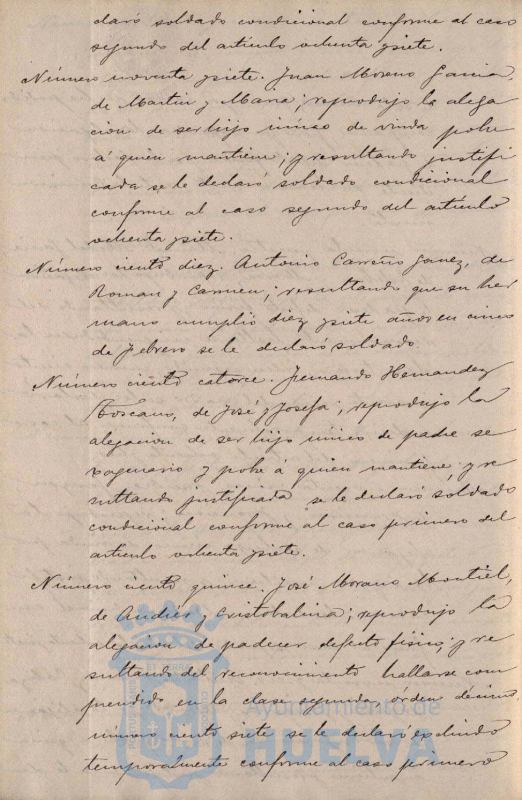 claró soldado condicional conforme al caso
segundo del artículo ochenta ysiete.
Número noventa ysiete. Juan Moreno Garcia,
de Martin y Maria; reprodujo la alega
cion de ser hijo único de viuda pobre
á quien mantiene; y resultando justifi
cada se le declaró soldado condicional
conforme al caso segundo del artículo
ochenta ysiete.
Número ciento diez. Antonio Carreño Gomez, de
Roman y Carmen; resultando que su her
mano cumplió diez ysiete años en cinco
de Febrero se le declaró soldado.
Número ciento catorce. Fernando Hernandez
Toscano, de José y Josefa; reprodujo la
alegacion de ser hijo único de padre se
xagenario y pobre á quien mantiene y re
sultando justificada se le declaró soldado
condicional conforme al caso primero del
artículo ochenta ysiete.
Número ciento quince. José Morano Montiel,
de Andrés y Cristobalina; reprodujo la
alegacion de padecer defecto físico; y re
sultando del reconocimiento hallarse com
prendido en la clase segunda, orden décimo
número ciento siete se le declaró excluido
temporalmente conforme al caso primero
Ayuntamiento de
HUELVA